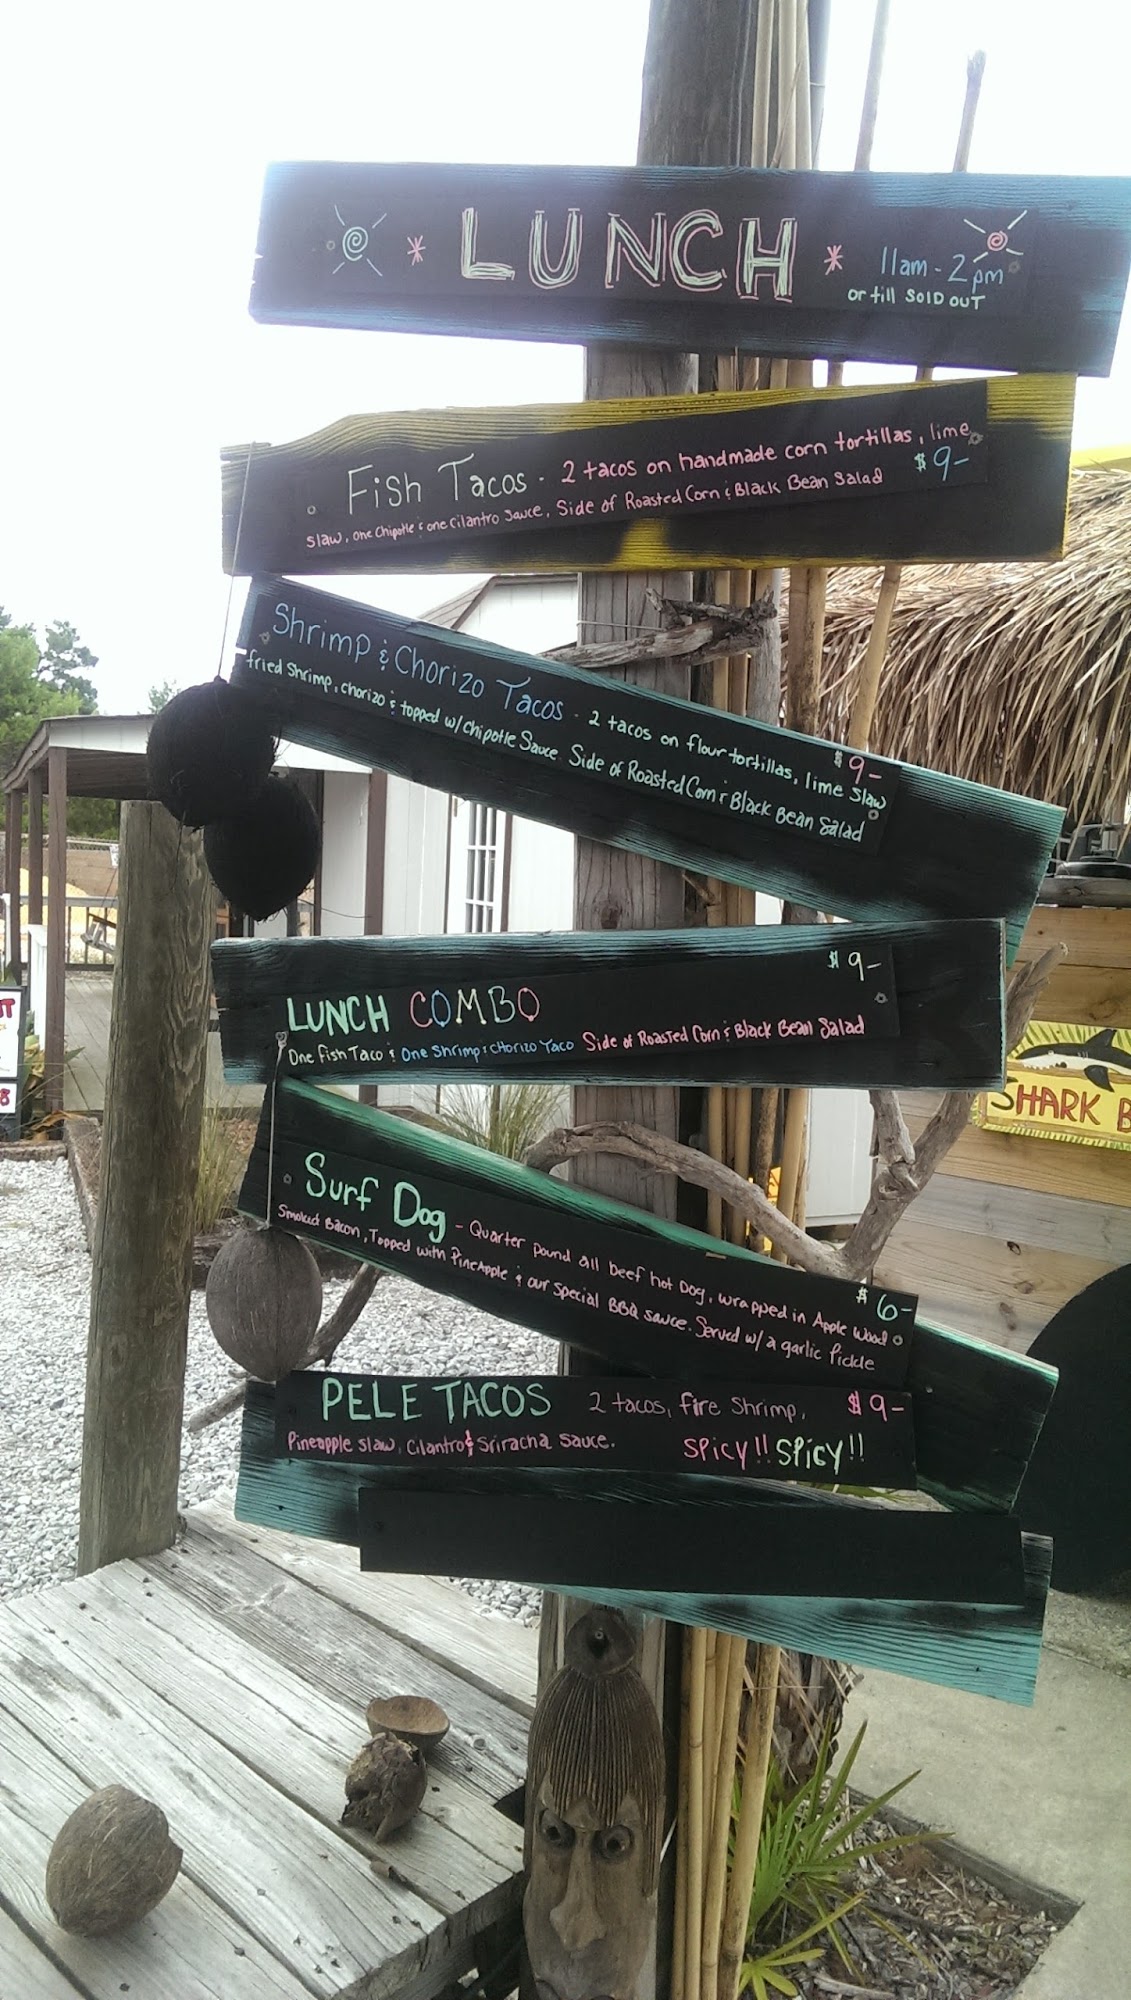 LUNCH
11am - 2pm
or till SOLD OUT
Fish Tacos - 2 tacos on handmade corn tortillas, lime
slaw, one Chipotle & one Cilantro Sauce, Side of Roasted Corn & Black Bean Salad
$9-
Shrimp & Chorizo Tacos - 2 tacos on flour tortillas, lime slaw
fried Shrimp, chorizo & topped w/ Chipotle Sauce. Side of Roasted Corn & Black Bean Salad
$9-
$9-
LUNCH COMBO
One Fish Taco & One Shrimp & Chorizo Taco Side of Roasted Corn & Black Bean Salad
SHARK B
Surf Dog - Quarter pound all beef hot Dog, wrapped in Apple Wood
Smoked Bacon, Topped with PineApple & our special BBQ sauce. Served w/ a garlic Pickle
$6-
PELE TACOS 2 tacos, fire Shrimp, $9-
Pineapple slaw, Cilantro & Sriracha sauce. SPicy!! SPicy!!